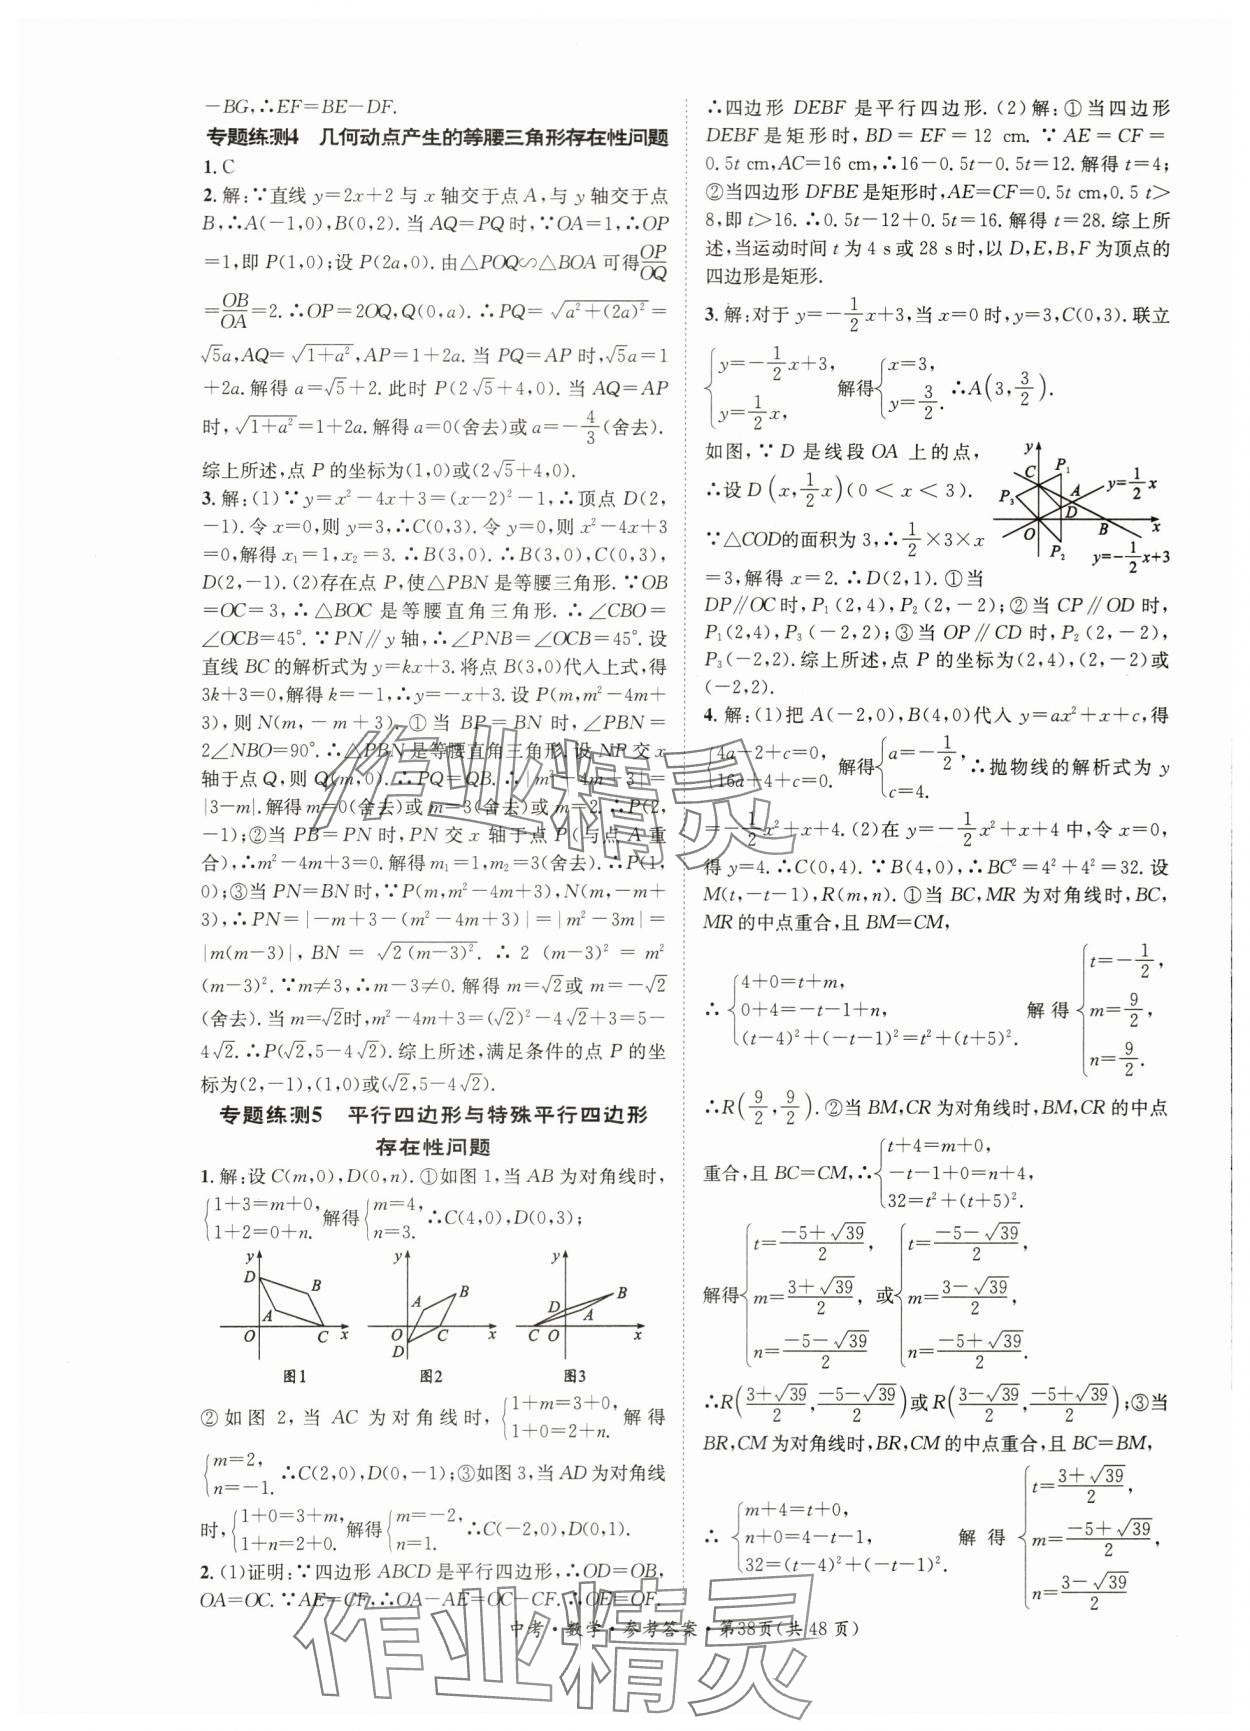 -BG,∴EF=BE-DF.
专题练测4 几何动点产生的等腰三角形存在性问题
1.C
2.解:∵直线 y=2x+2 与 x 轴交于点 A,与 y 轴交于点
B,∴A(-1,0),B(0,2).当 AQ=PQ 时,∵OA=1,∴OP
=1,即 P(1,0);设 P(2a,0).由△POQ∽△BOA 可得OP/OQ
=OB/OA=2.∴OP=2OQ,Q(0,a).∴PQ=√(a²+(2a)²)=
√5a,AQ=√(1+a²),AP=1+2a.当 PQ=AP 时,√5a=1
+2a.解得 a=√5+2.此时 P(2√5+4,0).当 AQ=AP
时,√(1+a²)=1+2a.解得 a=0(舍去)或 a=-4/3(舍去).
综上所述,点 P 的坐标为(1,0)或(2√5+4,0).
3.解:(1)∵y=x²-4x+3=(x-2)²-1,∴顶点 D(2,
-1).令 x=0,则 y=3,∴C(0,3).令 y=0,则 x²-4x+3
=0,解得 x₁=1,x₂=3.∴B(3,0).∴B(3,0),C(0,3),
D(2,-1).(2)存在点 P,使△PBN 是等腰三角形.∵OB
=OC=3,∴△BOC 是等腰直角三角形.∴∠CBO=
∠OCB=45°.∵PN∥y 轴,∴∠PNB=∠OCB=45°.设
直线 BC 的解析式为 y=kx+3.将点 B(3,0)代入上式,得
3k+3=0,解得 k=-1,∴y=-x+3.设 P(m,m²-4m+
3),则 N(m,-m+3).①当 BP=BN 时,∠PBN=
2∠NBO=90°.∴△PBN 是等腰直角三角形.设 NP 交 x
轴于点 Q,则 Q(m,0).∴PQ=QB.∴|m²-4m+3|=
|3-m|.解得 m=0(舍去)或 m=3(舍去)或 m=2.∴P(2,
-1);②当 PB=PN 时,PN 交 x 轴于点 P(与点 A 重
合),∴m²-4m+3=0.解得 m₁=1,m₂=3(舍去).∴P(1,
0);③当 PN=BN 时,∵P(m,m²-4m+3),N(m,-m+
3),∴PN=|-m+3-(m²-4m+3)|=|m²-3m|=
|m(m-3)|,BN=√(2(m-3)²).∴2(m-3)²=m²
(m-3)².∵m≠3,∴m-3≠0.解得 m=√2或 m=-√2
(舍去).当 m=√2时,m²-4m+3=(√2)²-4√2+3=5-
4√2.∴P(√2,5-4√2).综上所述,满足条件的点 P 的坐
标为(2,-1),(1,0)或(√2,5-4√2).
专题练测5 平行四边形与特殊平行四边形
存在性问题
1.解:设 C(m,0),D(0,n).①如图 1,当 AB 为对角线时,
{1+3=m+0, 1+2=0+n. 解得{m=4, n=3. ∴C(4,0),D(0,3);
y D B A O C x
y A B O C x D
y D B A C O x
图1 图2 图3
②如图 2,当 AC 为对角线时,{1+m=3+0, 1+0=2+n. 解得
{m=2, n=-1. ∴C(2,0),D(0,-1);③如图 3,当 AD 为对角线
时,{1+0=3+m, 1+n=2+0. 解得{m=-2, n=1. ∴C(-2,0),D(0,1).
2.(1)证明:∵四边形 ABCD 是平行四边形,∴OD=OB,
OA=OC.∵AE=CF,∴OA-AE=OC-CF.∴OE=OF.
∴四边形 DEBF 是平行四边形.(2)解:①当四边形
DEBF 是矩形时,BD=EF=12 cm.∵AE=CF=
0.5t cm,AC=16 cm,∴16-0.5t-0.5t=12.解得 t=4;
②当四边形 DFBE 是矩形时,AE=CF=0.5t cm,0.5t>
8,即 t>16.∴0.5t-12+0.5t=16.解得 t=28.综上所
述,当运动时间 t 为 4 s 或 28 s 时,以 D,E,B,F 为顶点的
四边形是矩形.
3.解:对于 y=-1/2x+3,当 x=0 时,y=3,C(0,3).联立
{y=-1/2x+3, y=1/2x, 解得{x=3, y=3/2. ∴A(3,3/2).
如图,∵D 是线段 OA 上的点,
∴设 D(x,1/2x)(0<x<3).
∵△COD的面积为 3,∴1/2×3×x
y C P₁ P₃ A y=1/2x D O B x P₂ y=-1/2x+3
=3,解得 x=2.∴D(2,1).①当
DP∥OC 时,P₁(2,4),P₂(2,-2);②当 CP∥OD 时,
P₁(2,4),P₃(-2,2);③当 OP∥CD 时,P₂(2,-2),
P₃(-2,2).综上所述,点 P 的坐标为(2,4),(2,-2)或
(-2,2).
4.解:(1)把 A(-2,0),B(4,0)代入 y=ax²+x+c,得
{4a-2+c=0, 16a+4+c=0. 解得{a=-1/2, c=4. ∴抛物线的解析式为 y
=-1/2x²+x+4.(2)在 y=-1/2x²+x+4 中,令 x=0,
得 y=4.∴C(0,4).∵B(4,0),∴BC²=4²+4²=32.设
M(t,-t-1),R(m,n).①当 BC,MR 为对角线时,BC,
MR 的中点重合,且 BM=CM,
∴{4+0=t+m, 0+4=-t-1+n, (t-4)²+(-t-1)²=t²+(t+5)². 解得{t=-1/2, m=9/2, n=9/2.
∴R(9/2,9/2).②当 BM,CR 为对角线时,BM,CR 的中点
重合,且 BC=CM,∴{t+4=m+0, -t-1+0=n+4, 32=t²+(t+5)².
解得{t=(-5+√39)/2, m=(3+√39)/2, n=(-5-√39)/2 或{t=(-5-√39)/2, m=(3-√39)/2, n=(-5+√39)/2.
∴R((3+√39)/2,(-5-√39)/2)或R((3-√39)/2,(-5+√39)/2);③当
BR,CM 为对角线时,BR,CM 的中点重合,且 BC=BM,
∴{m+4=t+0, n+0=4-t-1, 32=(t-4)²+(-t-1)². 解得{t=(3+√39)/2, m=(-5+√39)/2, n=(3-√39)/2
中考·数学·参考答案·第38页(共 48 页)
作业精灵
作业精灵